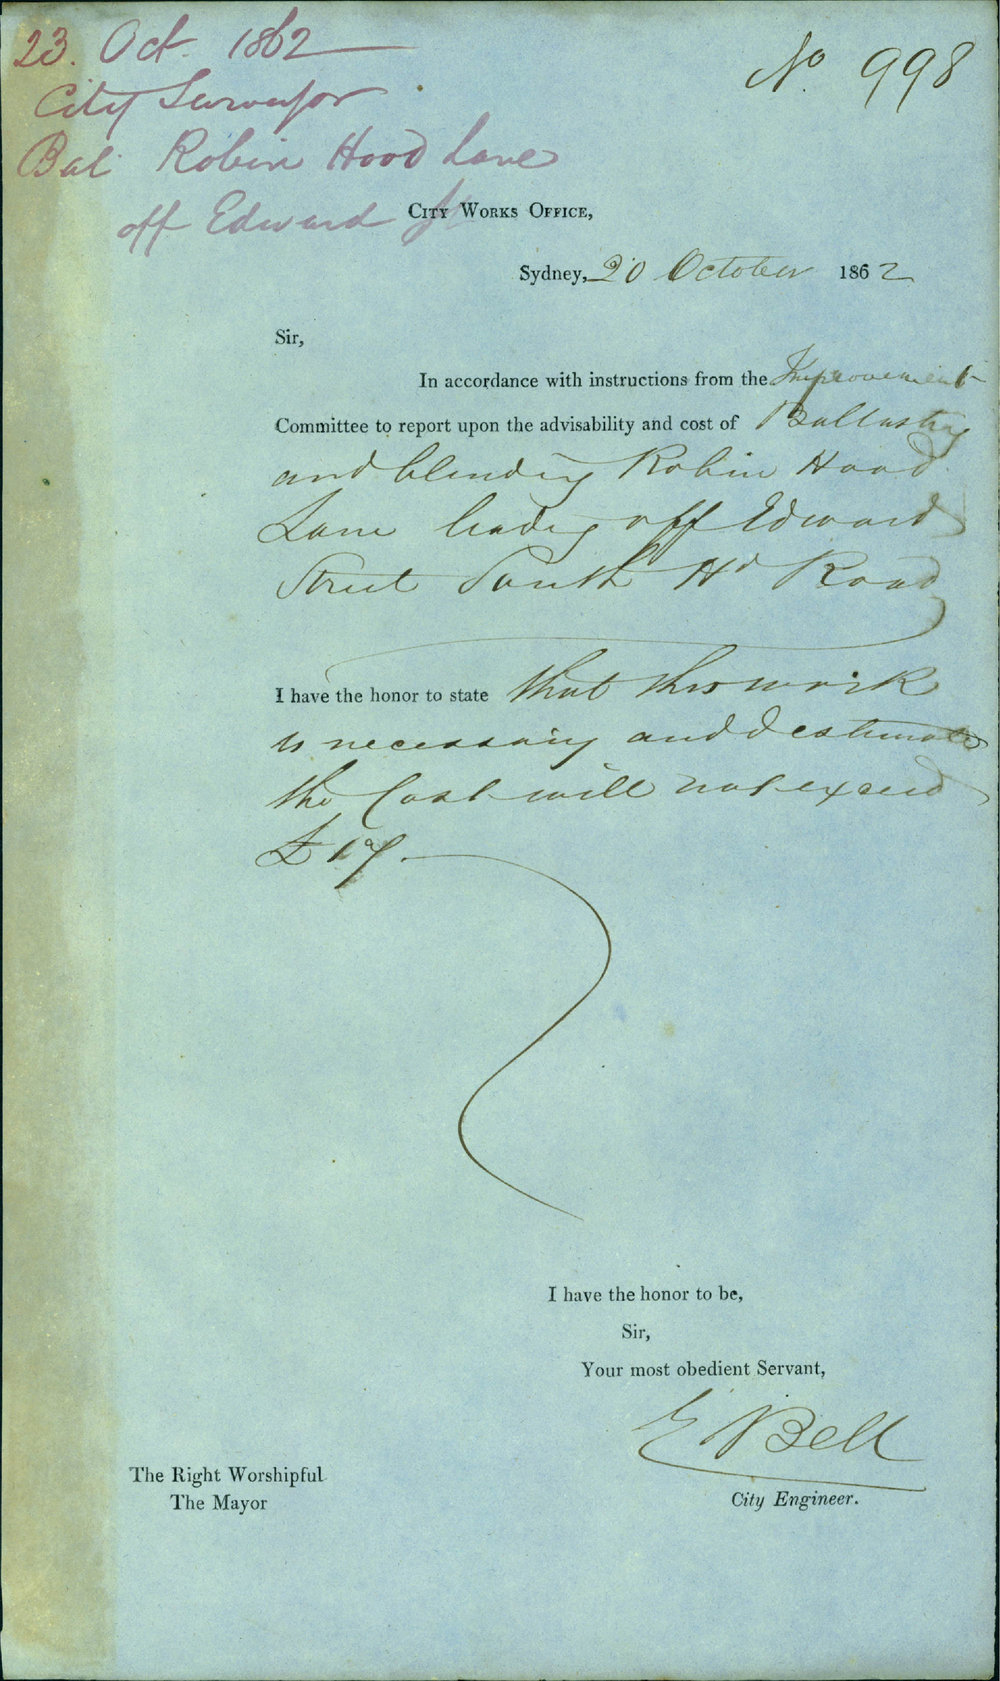 23. Oct. 1862
City Surveyor
Bal. Robin Hood Lane
off Edward St
No 998
CITY WORKS OFFICE,
Sydney, 20 October 1862
Sir,
In accordance with instructions from the Improvement
Committee to report upon the advisability and cost of Ballasting
and blinding Robin Hood
Lane leading off Edward
Street South Hd Road
I have the honor to state that this work
is necessary and I estimate
the Cost will not exceed
£
I have the honor to be,
Sir,
Your most obedient Servant,
E Bell
City Engineer.
The Right Worshipful
The Mayor